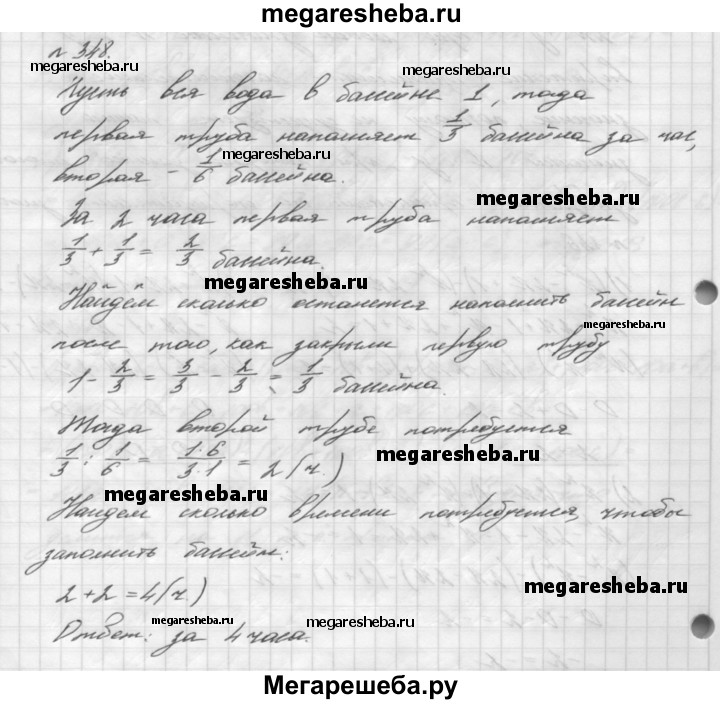 megaresheba.ru
№ 348.
megaresheba.ru
megaresheba.ru
Пусть вся вода в бассейне 1, тогда
первая труба наполняет 1/3 бассейна за час,
megaresheba.ru
вторая – 1/6 бассейна.
megaresheba.ru
За 2 часа первая труба наполняет
1/3 + 1/3 = 2/3 бассейна.
megaresheba.ru
Найдём сколько останется наполнить бассейн
megaresheba.ru
после того, как закрыли первую трубу
1 - 2/3 = 3/3 - 2/3 = 1/3 бассейна
Тогда второй трубе потребуется
megaresheba.ru
1/3 : 1/6 = 1·6/3·1 = 2 (ч.)
megaresheba.ru
Найдем сколько времени потребуется, чтобы
заполнить бассейн:
megaresheba.ru
2 + 2 = 4 (ч.)
megaresheba.ru
Ответ: за 4 часа.
megaresheba.ru
Мегарешеба.ру